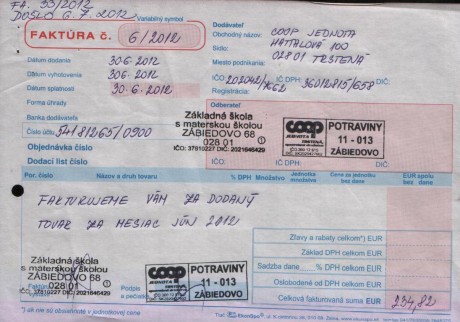 FA. 33/2012
DOŠLO 6.7.2012
Variabilný symbol
FAKTÚRA č. 6/2012
Dodávateľ
Obchodný názov: COOP JEDNOTA
Sídlo: HATTALOVA 100
Miesto podnikania: 02801 TRSTENÁ
IČ DPH: 36012815/658
Registrácia:
Dátum dodania 30.6.2012
Dátum vyhotovenia 30.6.2012
Dátum splatnosti 30.6.2012
Forma úhrady
Banka dodávateľa
Číslo účtu
Objednávka číslo
Dodací list číslo
Odberateľ
Základná škola
s materskou školou
ZÁBIEDOVO 68
028 01
IČO: 37810227 DIČ: 2021646429
coop
JEDNOTA
POTRAVINY
11 - 013
ZÁBIEDOVO
IČO:
IČ DPH:
DIČ:
Por. číslo Názov a druh tovaru % DPH Množstvo Jednotka množstva Cena za jednotku bez dane EUR spolu bez dane
FAKTURUJEME VÁM ZA DODANÝ
TOVAR ZA MESIAC JÚN 2012
Základná škola
s materskou školou
ZÁBIEDOVO 68
028 01
IČO: 37810227 DIČ: 2021646429
Podpis a
coop
JEDNOTA
POTRAVINY
11 - 013
ZÁBIEDOVO
Zľavy a rabaty celkom*) EUR
Základ DPH celkom EUR
Sadzba dane % DPH celkom EUR
Oslobodené od DPH celkom EUR
Celková fakturovaná suma EUR 234,82
*) ak nie sú obsiahnuté v jednotkovej cene